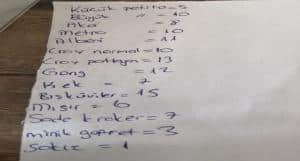 Küçük petito = 5
Büyük " = 10
Aka = 8
Metro = 10
Albeni = 11
Crax normal = 10
Crax = 13
Gong = 12
Kek = 7
Bisküviler = 15
Mısır = 6
Sade kraker = 7
minik gofret = 3
Sakız = 1